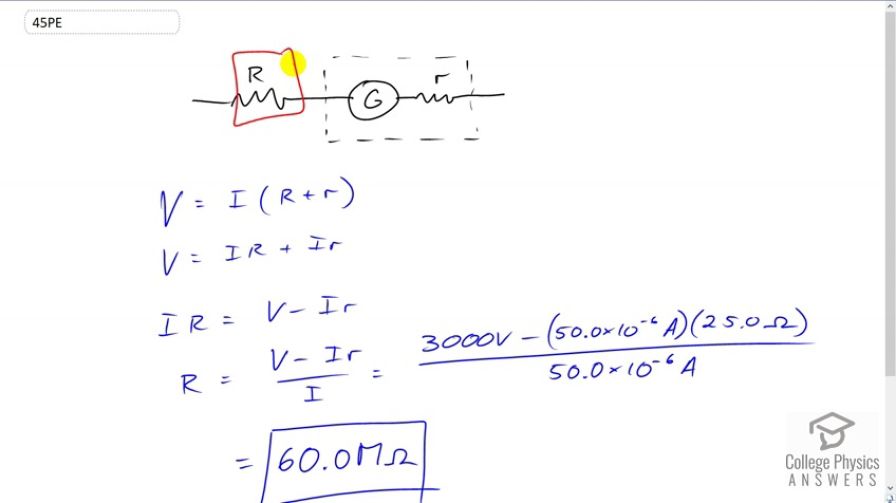 45PE
R
G
r
V = I (R + r)
V = IR + Ir
IR = V - Ir
R = (V - Ir)/I = (3000V - (50.0×10⁻⁶ A)(25.0Ω))/(50.0×10⁻⁶ A)
= 60.0MΩ
College Physics
ANSWERS